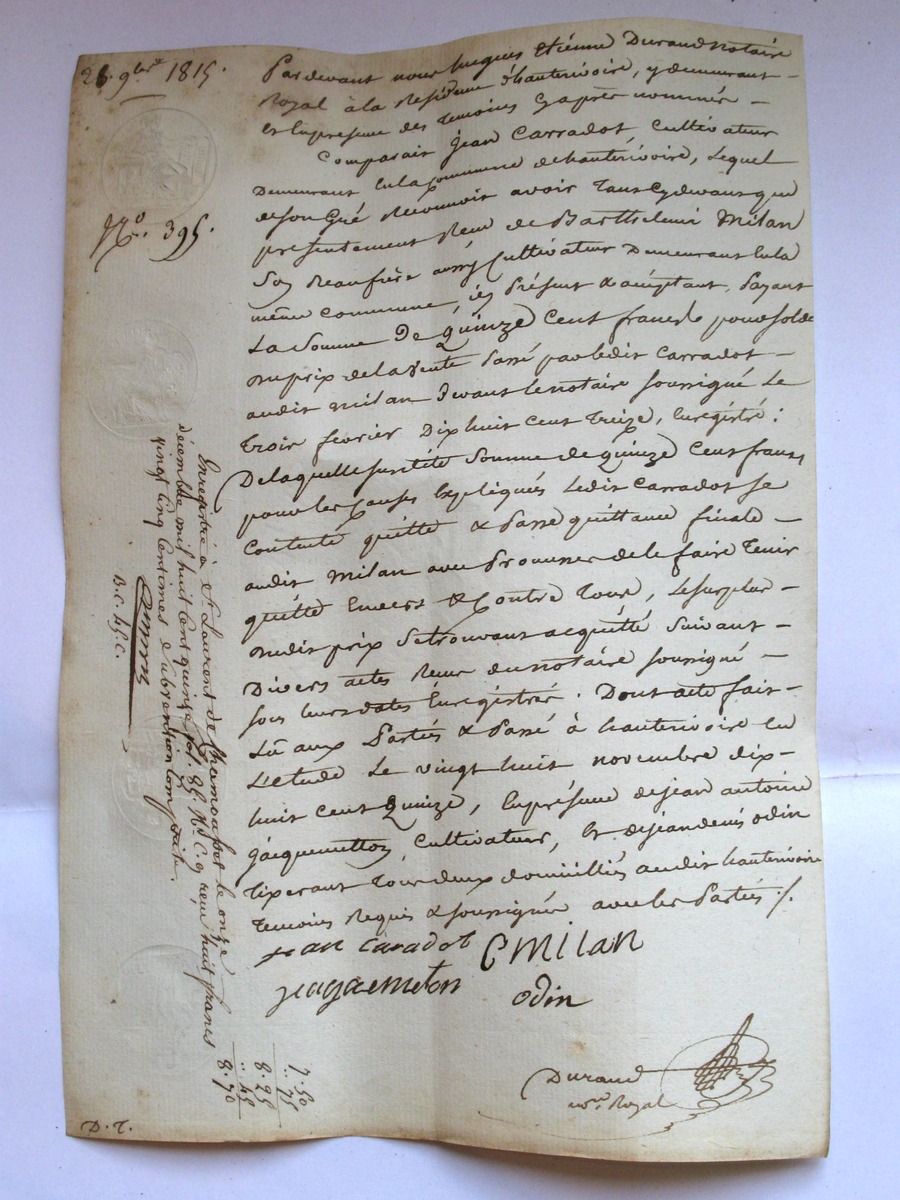 28. 9bre 1815.
No. 395.
Pardevant nous Jacques Etiénne Durand notaire
Royal à la Residence d'hauterivoire, y demeurant
et En présence des temoins Cy après nommés
Comparait Jean Carradot, Cultivateur
Demeurant En la Commune de hauterivoire, Lequel
de son Gré Reconnoit avoir tant Cy devant que
présentement Recu de Barthelemi Milan
Son Beaufrère aussy Cultivateur Demeurant En la
même Commune, icy Présent & acceptant, Payant
La Somme De Quinze Cent francs pour Solde
du prix de la Vente Passé par ledit Carradot
audit Milan devant le notaire soussigné Le
trois février Dix huit Cent treize, Enregistré :
De laquelle susditte Somme de quinze Cent francs
pour les Causes Expliqués Ledit Carradot se
Contente quitte & Passe quittance finale
audit Milan avec Promesse de le faire tenir
quitte Envers & Contre tous, Le surplus
dudit prix Se trouvant acquitté Suivant
Divers actes Recus du notaire soussigné
sous leurs dates Enregistrés. Dont acte fait
Lu aux Parties & Passé à hauterivoire En
L'etude Le vingt huit novembre dix
huit Cent Quinze, En présence de jean antoine
jacquemetton, Cultivateur, Et de jean denis odin
tixerant tous deux domiciliés audit hauterivoire
temoins Requis & soussignés avec les Parties ./.
jean Caradot C Milan
jaquemeton odin
Durand
nore. Royal
Enregistré à St Laurent de Chamousset le onze
décembre mil huit cent quinze fol. 85. Ro. C. 9 reçu huit francs
vingt cinq centimes Subvention comprise.
B.C. 45.C.
7. 50
.. 75
8. 25
.. 45
8. 70
D. T.